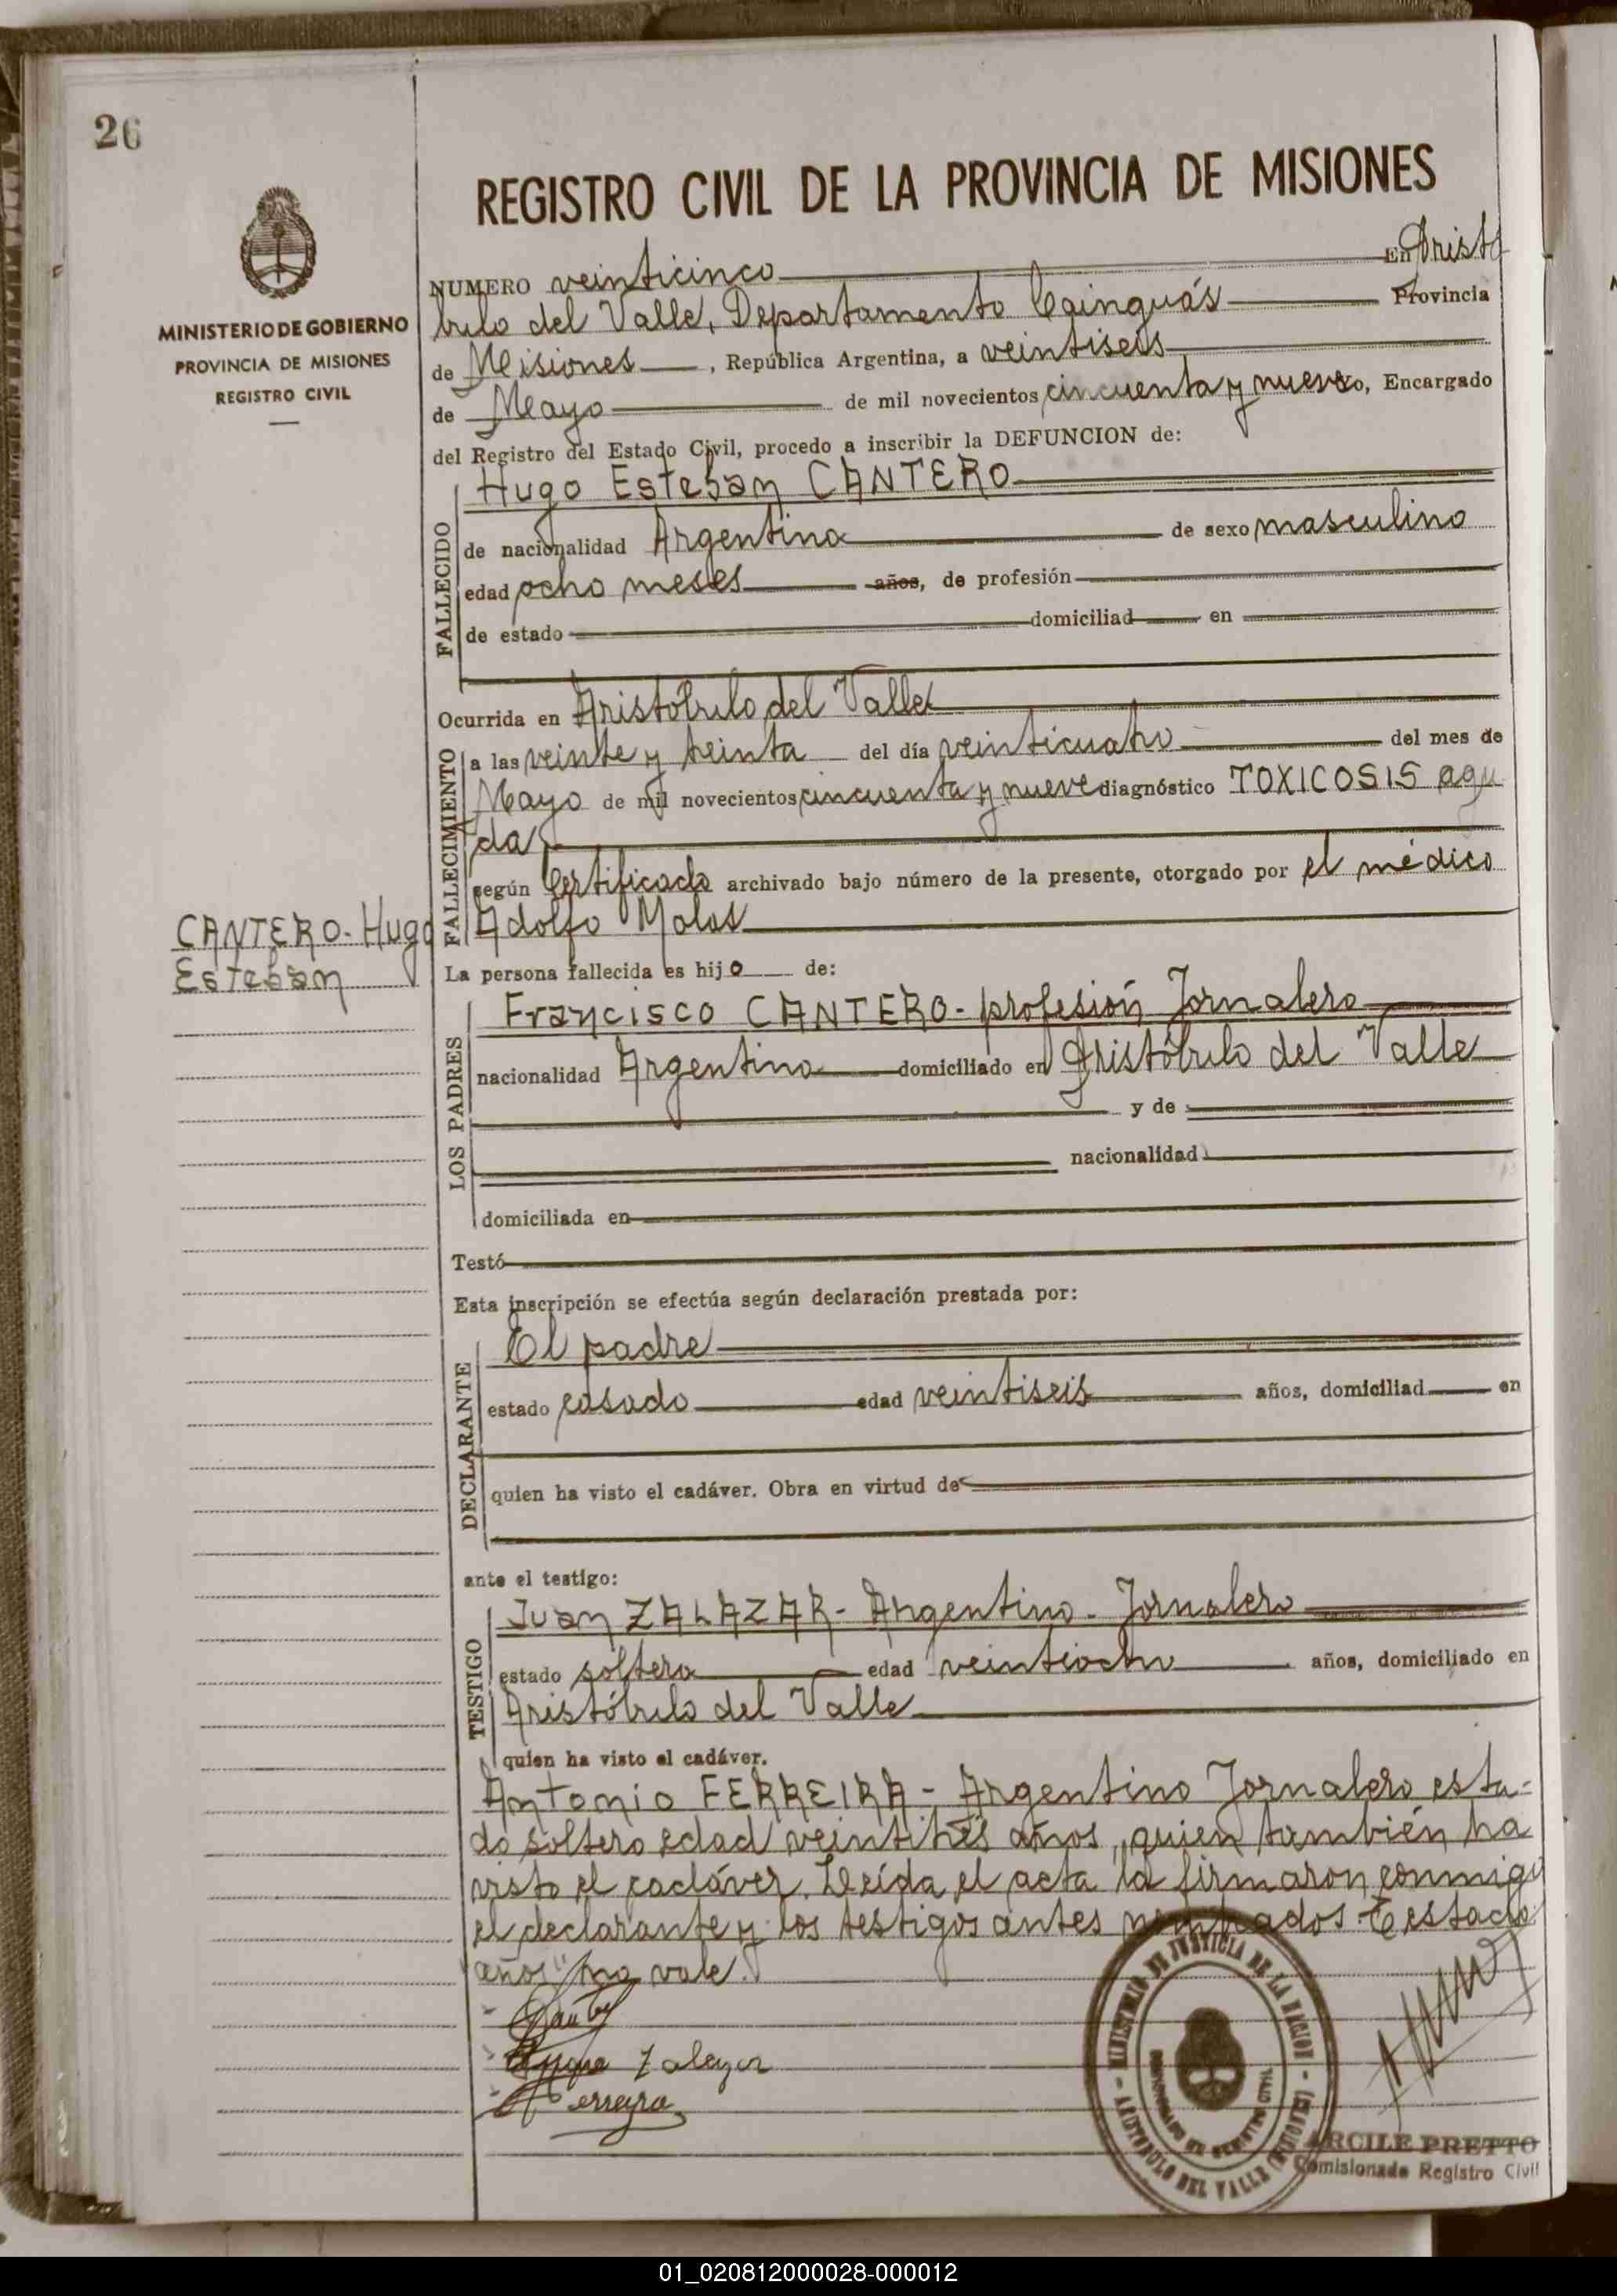 26
MINISTERIO DE GOBIERNO
PROVINCIA DE MISIONES
REGISTRO CIVIL
CANTERO- Hugo
Esteban
REGISTRO CIVIL DE LA PROVINCIA DE MISIONES
NUMERO veinticinco En Aristó
bulo del Valle, Departamento Cainguás Provincia
de Misiones, República Argentina, a veintiseis
de Mayo de mil novecientos cincuenta y nueve, Encargado
del Registro del Estado Civil, procedo a inscribir la DEFUNCION de:
FALLECIDO
Hugo Esteban CANTERO
de nacionalidad Argentina de sexo masculino
edad ocho meses años, de profesión
de estado domiciliad en
Ocurrida en Aristóbulo del Valle
FALLECIMIENTO
a las veinte y treinta del día veinticuatro del mes de
Mayo de mil novecientos cincuenta y nueve diagnóstico TOXICOSIS agu
da
según Certificado archivado bajo número de la presente, otorgado por el médico
Adolfo Molas
La persona fallecida es hijo de:
LOS PADRES
Francisco CANTERO- profesión Jornalero
nacionalidad Argentina domiciliado en Aristóbulo del Valle
y de
nacionalidad
domiciliada en
Testó
Esta inscripción se efectúa según declaración prestada por:
DECLARANTE
El padre
estado casado edad veintiseis años, domiciliad en
quien ha visto el cadáver. Obra en virtud de
ante el testigo:
TESTIGO
Juan ZALAZAR- Argentino- Jornalero
estado soltero edad veintiocho años, domiciliado en
Aristóbulo del Valle
quien ha visto el cadáver.
Antonio FERREIRA- Argentino Jornalero esta-
do soltero edad veintitrés años, quien también ha
visto el cadáver. Leída el acta la firmaron conmigo
el declarante y los testigos antes nombrados. Testado
años "no vale".
Zalazar
Ferreyra
MINISTERIO DE JUSTICIA DE LA NACION
REGISTRO CIVIL
ARISTOBULO DEL VALLE (MISIONES)
ARCILE PRETTO
Comisionado Registro Civil
01_020812000028-000012